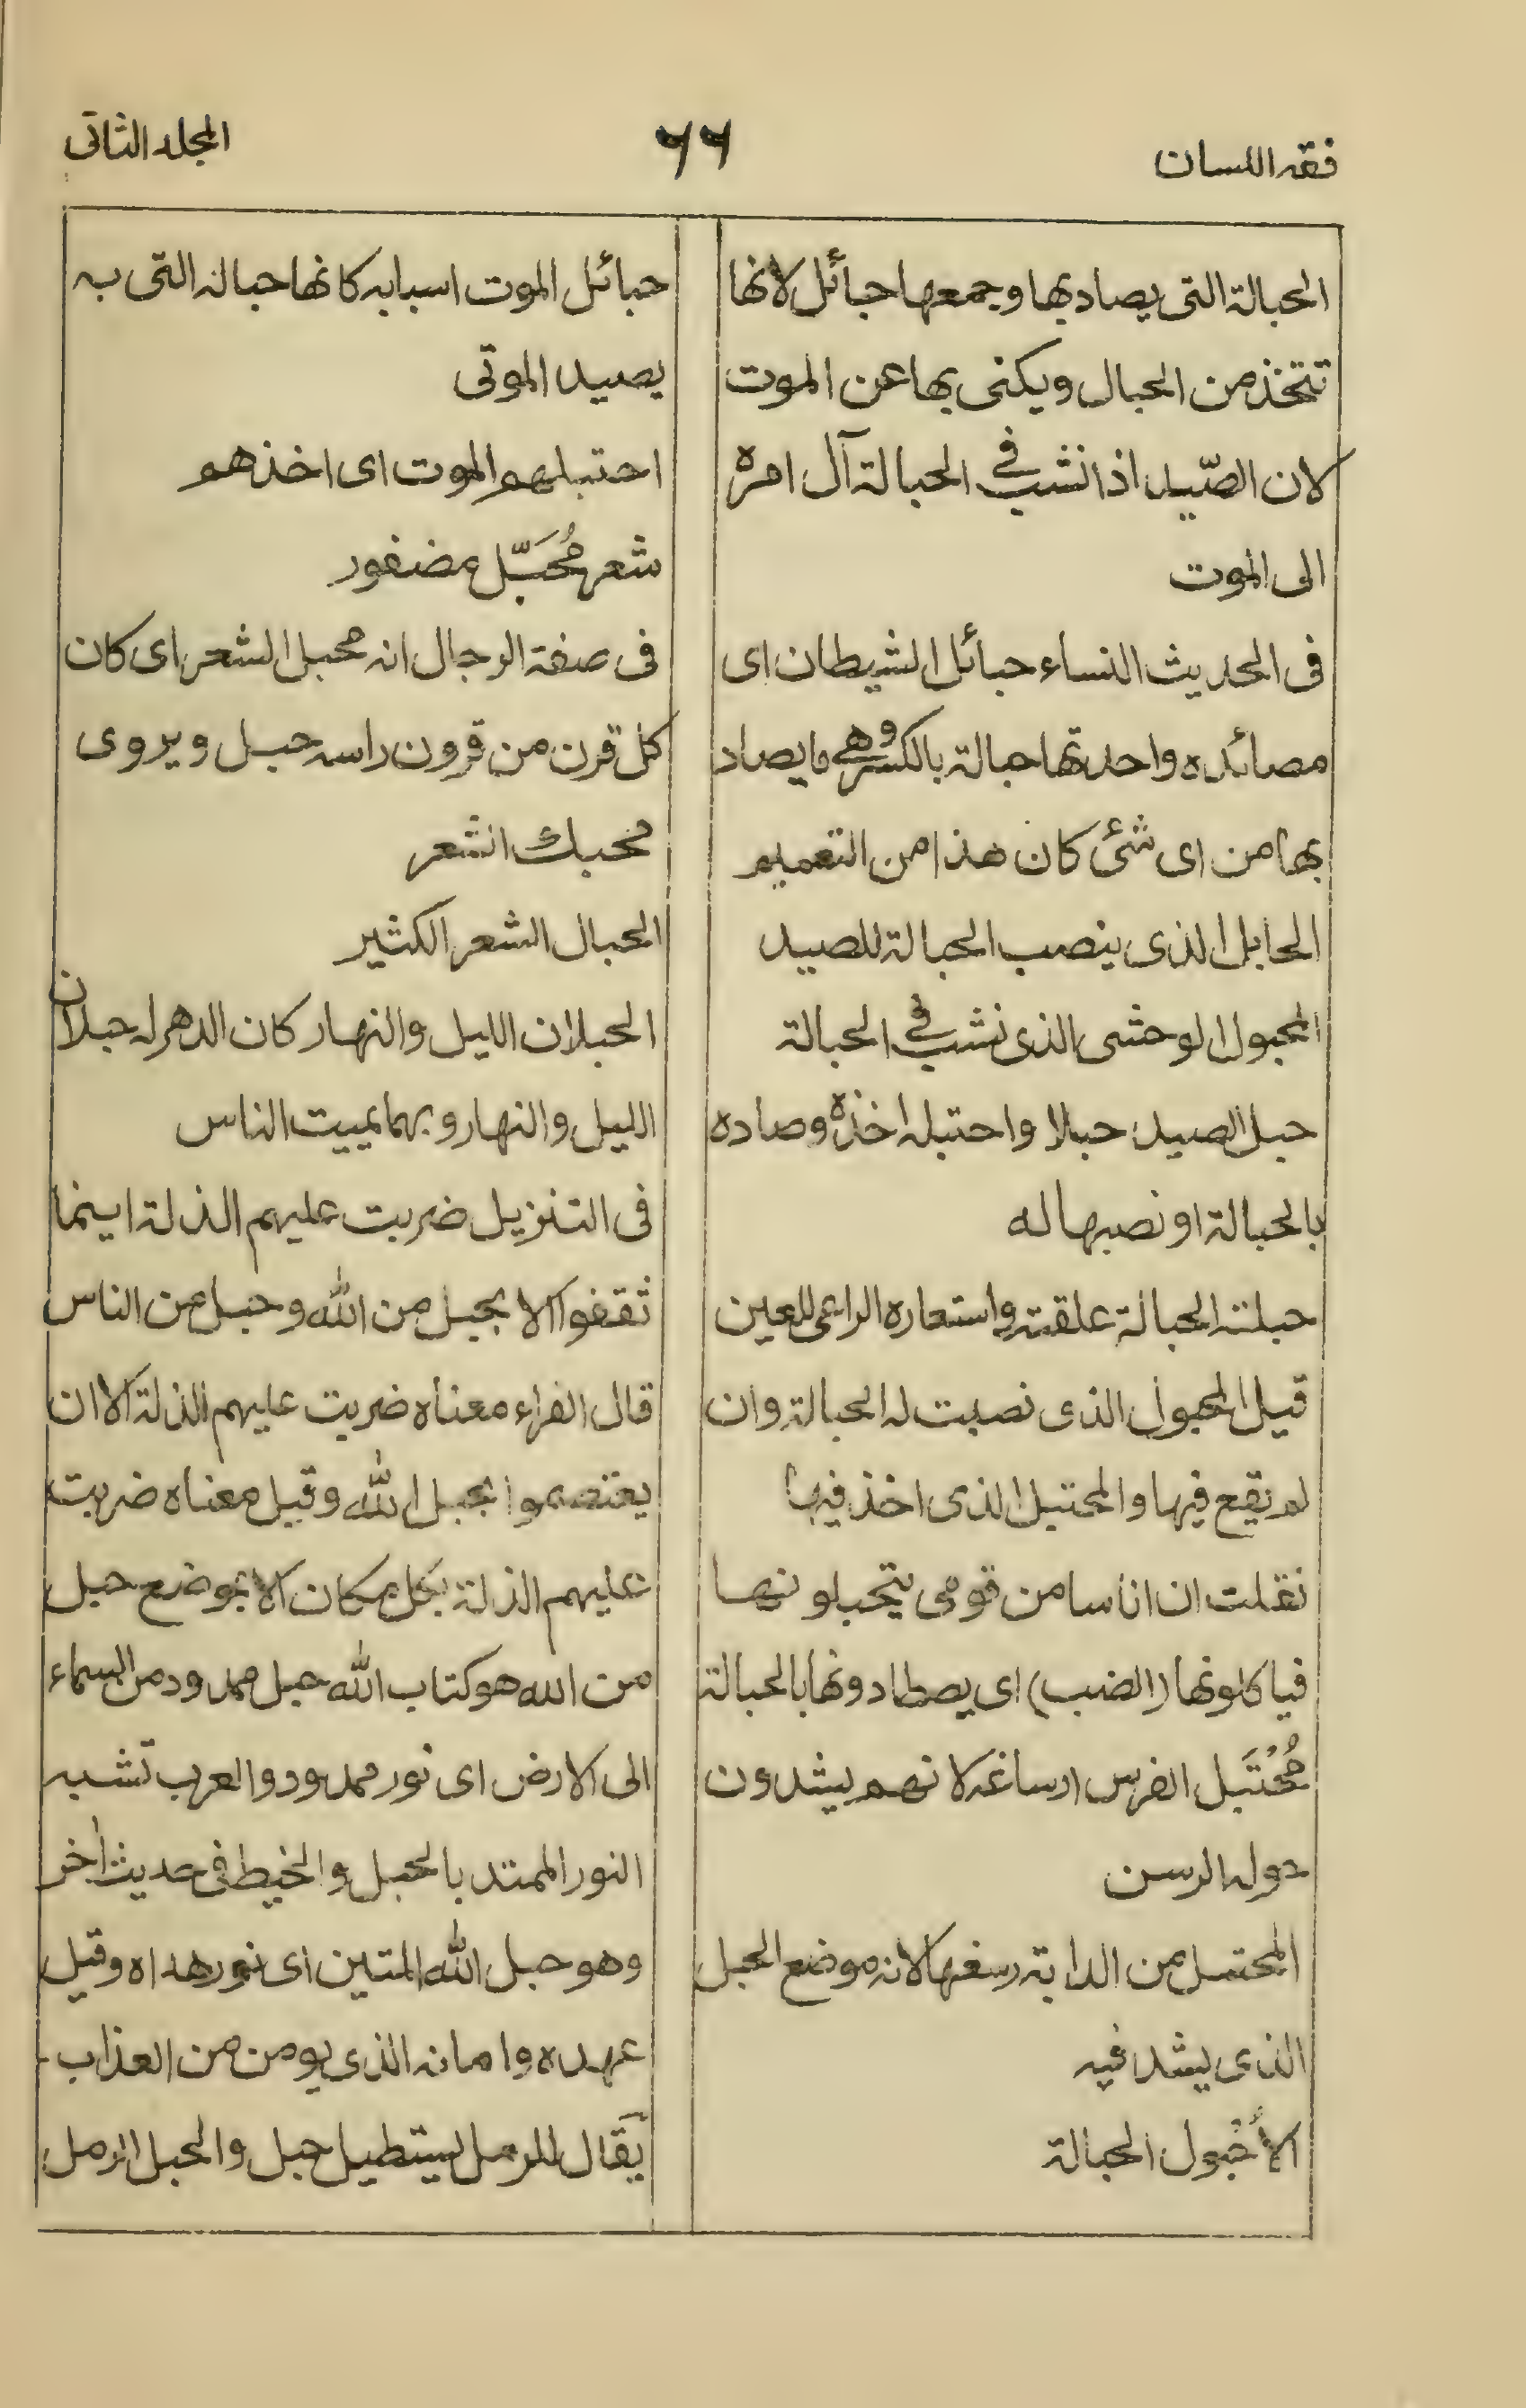 فقه اللسان
٦٦
المجلد الثانى
الحبالة التى يصاد بها وجمعها حبائل لانها
تتخذ من الحبال ويكنى بها عن الموت
لان الصّيد اذا نشب فى الحبالة آل امره
الى الموت
فى الحديث النساء حبائل الشيطان اى
مصائده واحدتها حبالة بالكسر وهى ما يصاد
بها من اى شئ كان هذا من التعميم
الحابل الذى ينصب الحبالة للصيد
المحبول الوحشى الذى نشب فى الحبالة
حبل الصيد حبلا واحتبله اخذه وصاده
بالحبالة او نصبها له
حبلته الحبالة علقته واستعاره الراعى للعين
قيل المحبول الذى نصبت له الحبالة وان
لم تقع فيها والمحتبل الذى اخذ فيها
نقلت ان اناسا من قومى يتحبلونها
فياكلونها (الضب) اى يصطادونها بالحبالة
مُحْتَبَل الفرس ارساغه لانهم يشدون
حوله الرسن
المحتبل من الدابة رسغها لانه موضع الحبل
الذى يشد فيه
الأحْبُول الحبالة
حبائل الموت اسبابه كانها حبالة التى به
يصيد الموتى
احتبلهم الموت اى اخذهم
شعر مُحَبَّل مضفور
فى صفة الرجال انه محبل الشعر اى كان
كل قرن من قرون راسه حبل ويروى
محبك الشعر
الحبال الشعر الكثير
الحبلان الليل والنهار كان الدهر له حبلان
الليل والنهار وبهما يميت الناس
فى التنزيل ضربت عليهم الذلة اينما
ثقفوا الا بحبل من الله وحبل من الناس
قال الفراء معناه ضربت عليهم الذلة الا ان
يعتصموا بحبل الله وقيل معناه ضربت
عليهم الذلة بكل مكان الا بموضع حبل
من الله هو كتاب الله حبل ممدود من السماء
الى الارض اى نور ممدود والعرب تشبه
النور الممتد بالحبل والخيط فى حديث اخر
وهو حبل الله المتين اى نور هداه وقيل
عهده وامانه الذى يومن من العذاب -
يقال للرمل يستطيل حبل والحبل الرمل